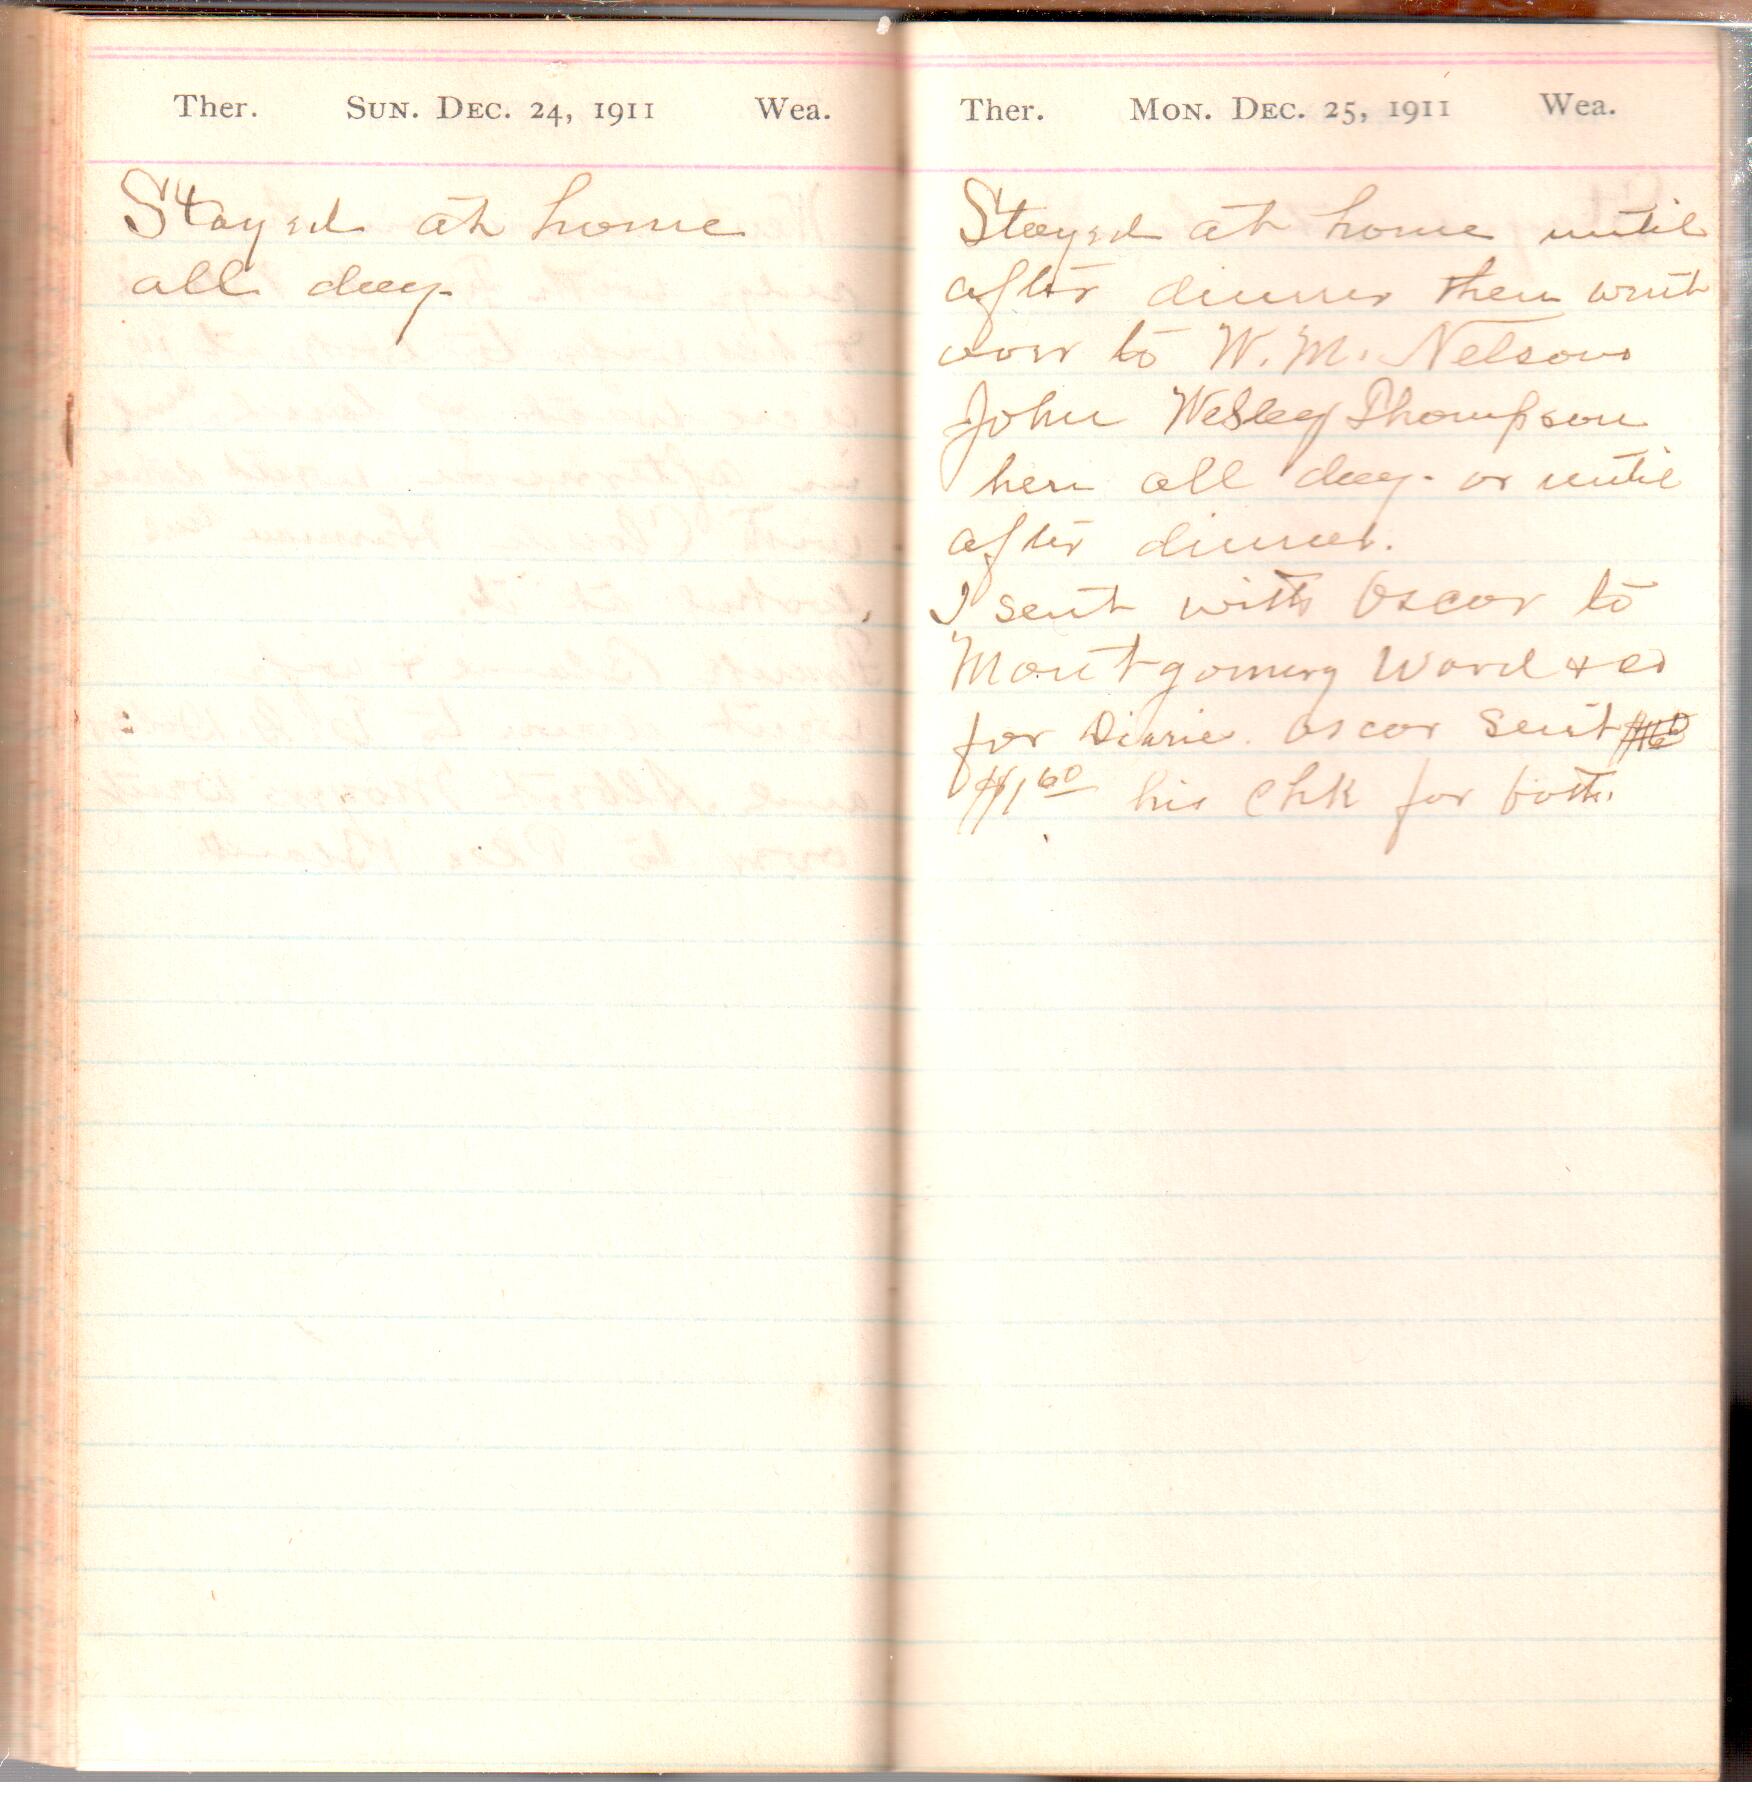 Ther. Sun. Dec. 24, 1911 Wea.
Stayed at home
all day.
Ther. Mon. Dec. 25, 1911 Wea.
Stayed at home until
after dinner then went
over to W. M. Nelsons
John Wesley Thompson
here all day. or until
after dinner.
I sent with Oscar to
Montgomery Ward & co
for Diarie. Oscar sent
$1 60 his Chk for both.